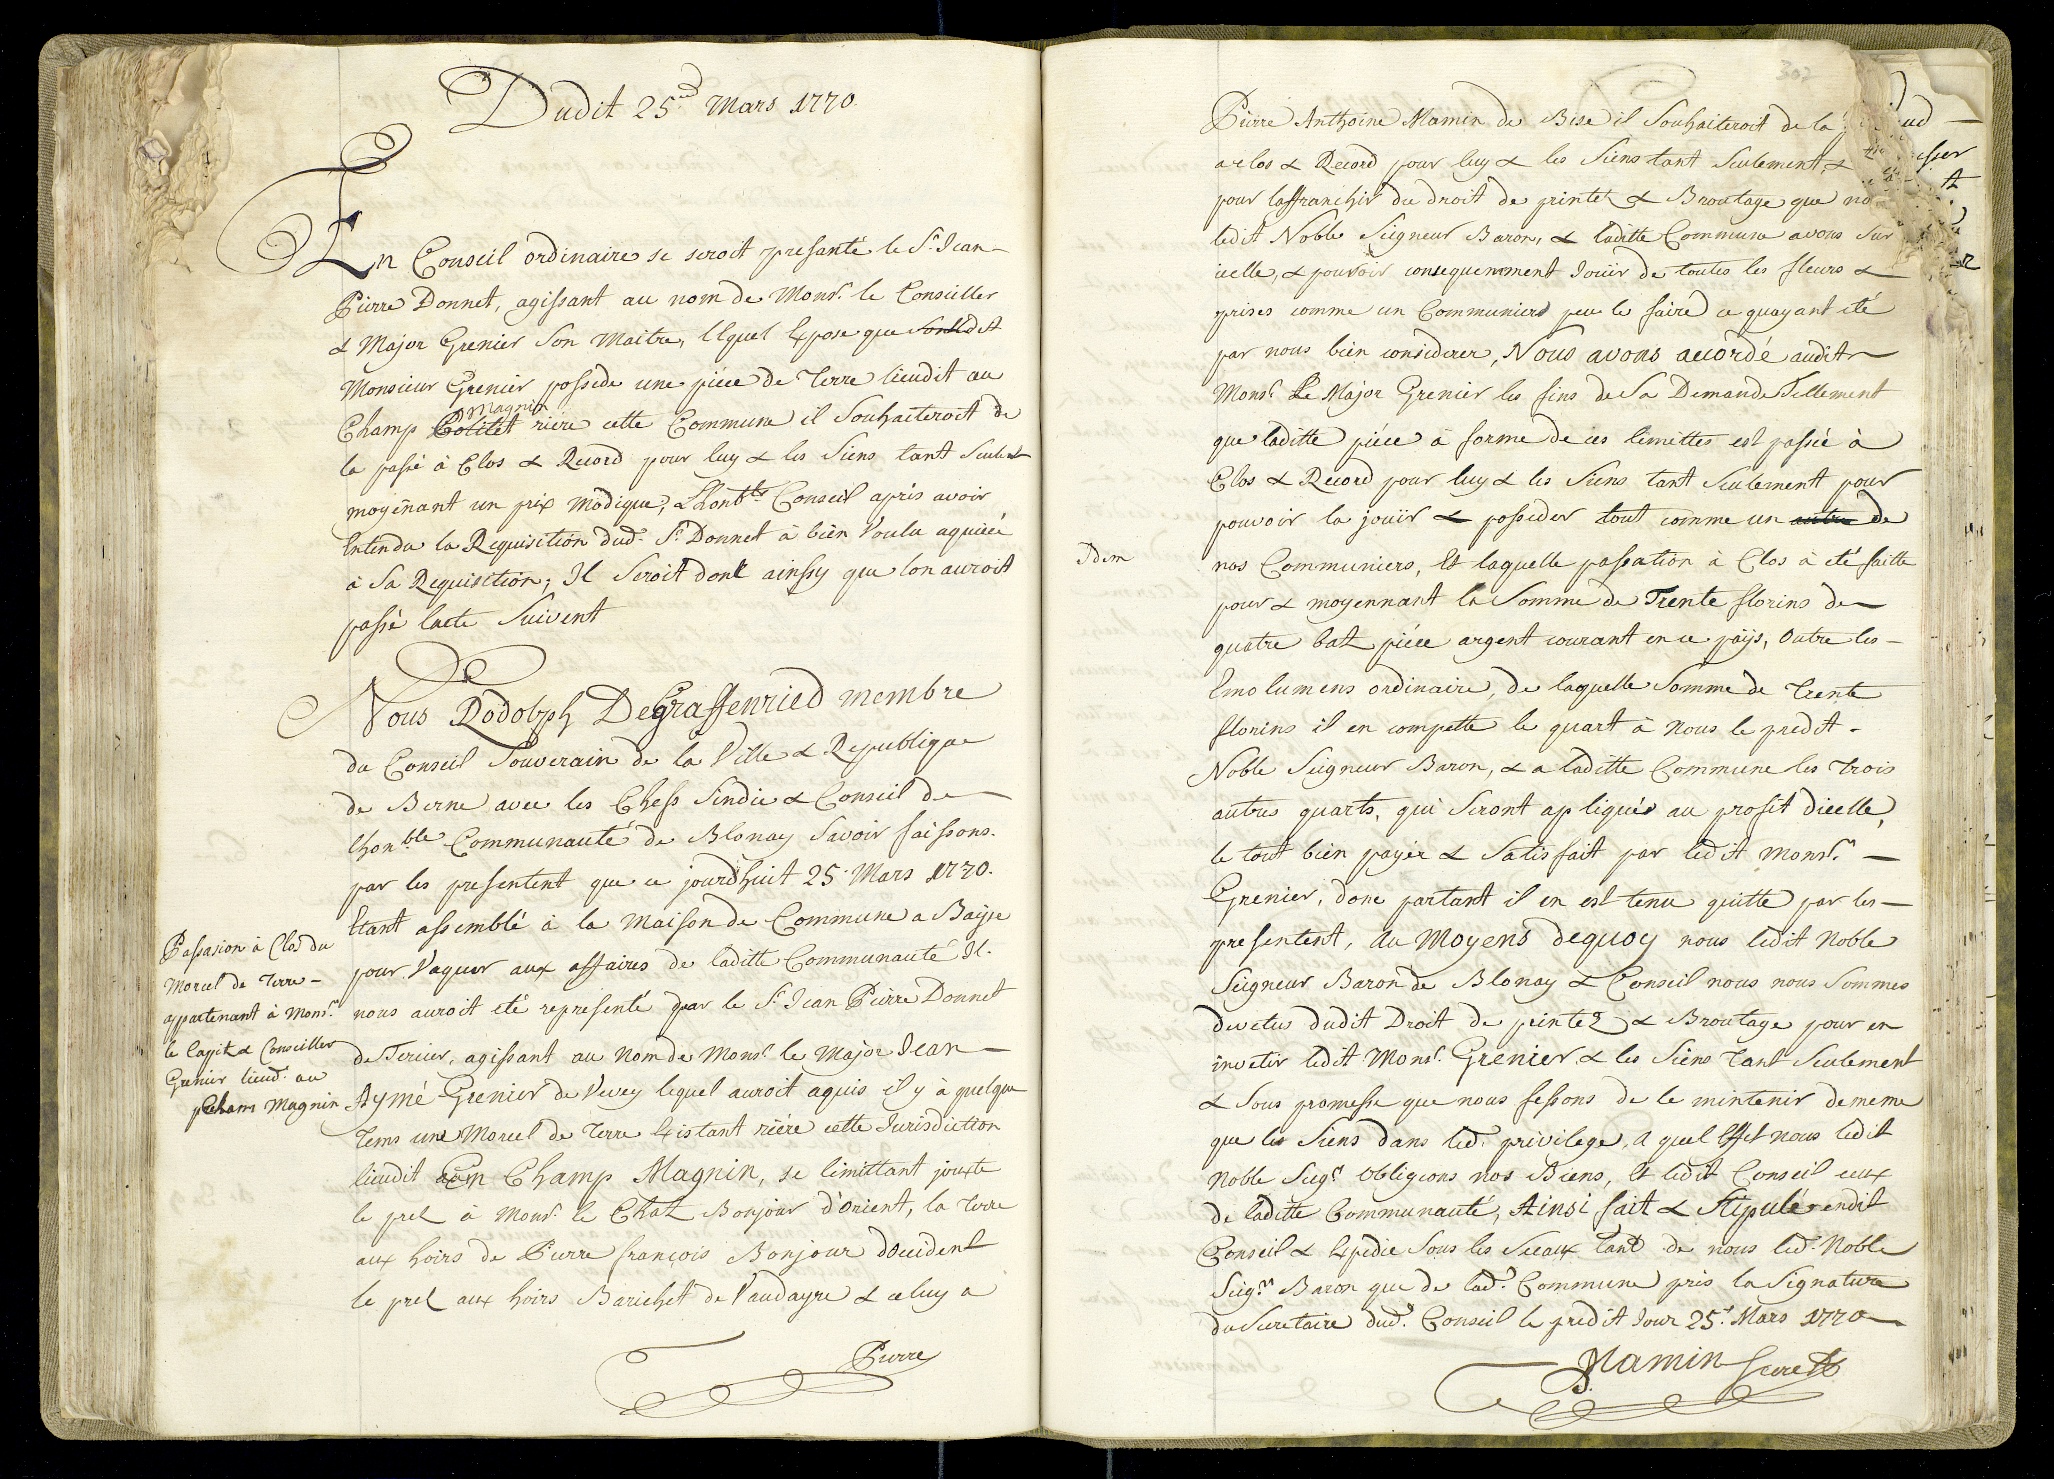 Dudit 25.me Mars 1770.
En Conseil ordinaire se seroit presanté le Sr. Jean
Pierre Donnet, agissant au nom de Monsr. le Conseiller
& Major Grenier Son Maitre, lequel Expose que Sontdit
Monsieur Grenier possede une piéce de Terre lieudit au
Magnin
Champ Politet riére cette Commune il Souhaiteroit de
la passé à Clos & Record pour luy & les Siens tant Seulemt
moyénant un prix modique; Lhonble. Conseil aprés avoir
Entendu la Requisition dud. Sr. Donnet à bien Voulu aquiécé
à Sa Requisition; Il Seroit dont ainssy que lon auroit
passé lacte Suivent
Nous Rodolph DeGraffenried membre
du Conseil Souverain de la Ville & Republique
de Berne avec les Chefs Sindic & Conseil de
lhonble Communauté de Blonay Savoir faissons.
par les presentent que ce jourdhuit 25. Mars 1770.
Etant assemblé à la Maison de Commune a Baÿse
pour Vaquer aux affaires de laditte Communauté Il.
nous auroit eté representé par le Sr. Jean Pierre Donnet
de Tercier, agissant au Nom de Monsr. le Major Jean
Aymé Grenier de Vevey lequel auroit aquis il y à quelque
Tems une Morcel de Terre Existant riére cette Jurisdiction
lieudit En Champ Magnin, se limittant jouxte
le prel à Monsr. le Chat. Bonjour d'orient, la Terre
aux hoirs de Pierre françois Bonjour docident
le prel aux hoirs Barichet de Vaudayre & celuy a
Pierre
Passasion à Clos du
Morcel de Terre
appartenant à Monsr.
le Capit & Conseiller
Grenier lieud. au
Cham Magnin
307
Pierre Anthoine Mamin de Bise il Souhaiteroit de la
a clos & Record pour luy & les Siens tant Seulement, &
pour laffranchir du droit de printez & Broutage que no
ledit Noble Seigneur Baron, & laditte Commune avons Sur
icelle, & pouvoir consequemment Jouïr de toutes les fleurs &
prises comme un Communiers peu le faire ce quayant eté
par nous bien considerer, Nous avons accordé audit
Monsr. Le Major Grenier les fins de Sa Demande Tellement
que laditte piéce à forme de ces limittes est passée à
Clos & Record pour luy & les Siens tant Seulement pour
pouvoir la jouïr & posseder tout comme un autre de
Idem
nos Communiers, Et laquelle passation à Clos à eté faitte
pour & moyennant la Somme de Trente florins de
quatre batz piéce argent courant en ce païjs, Outre les
Emolumens ordinaire, de laquelle Somme de Trente
florins il en compette le quart à Nous le predit.
Noble Seigneur Baron, & a laditte Commune les Trois
autres quarts, qui Seront apliqués au profit dicelle,
le tout bien payér & Satisfait par ledit Monsr.
Grenier, donc partant il en est tenu quitte par les
presentent, Au Moyens dequoy nous ledit Noble
Seigneur Baron de Blonay & Conseil nous nous Sommes
devetus dudit Droit de printez & Broutage pour en
invetir ledit Monsr. Grenier & les Siens Tant Seulement
& Sous promesse que nous fessons de le mintenir de meme
que les Siens dans led. privilege, A quel Effet nous ledit
Noble Seigr. Obligeons nos Biens, Et ledit Conseil ceux
de laditte Communauté, Ainsi fait & Stipulé en dit
Conseil & Expedie Sous les Sceaux Tant de nous led. Noble
Seigr. Baron que de lad. Commune pris la Signature
du Secretaire dud. Conseil le predit Jour 25.e Mars 1770
Mamin Secret